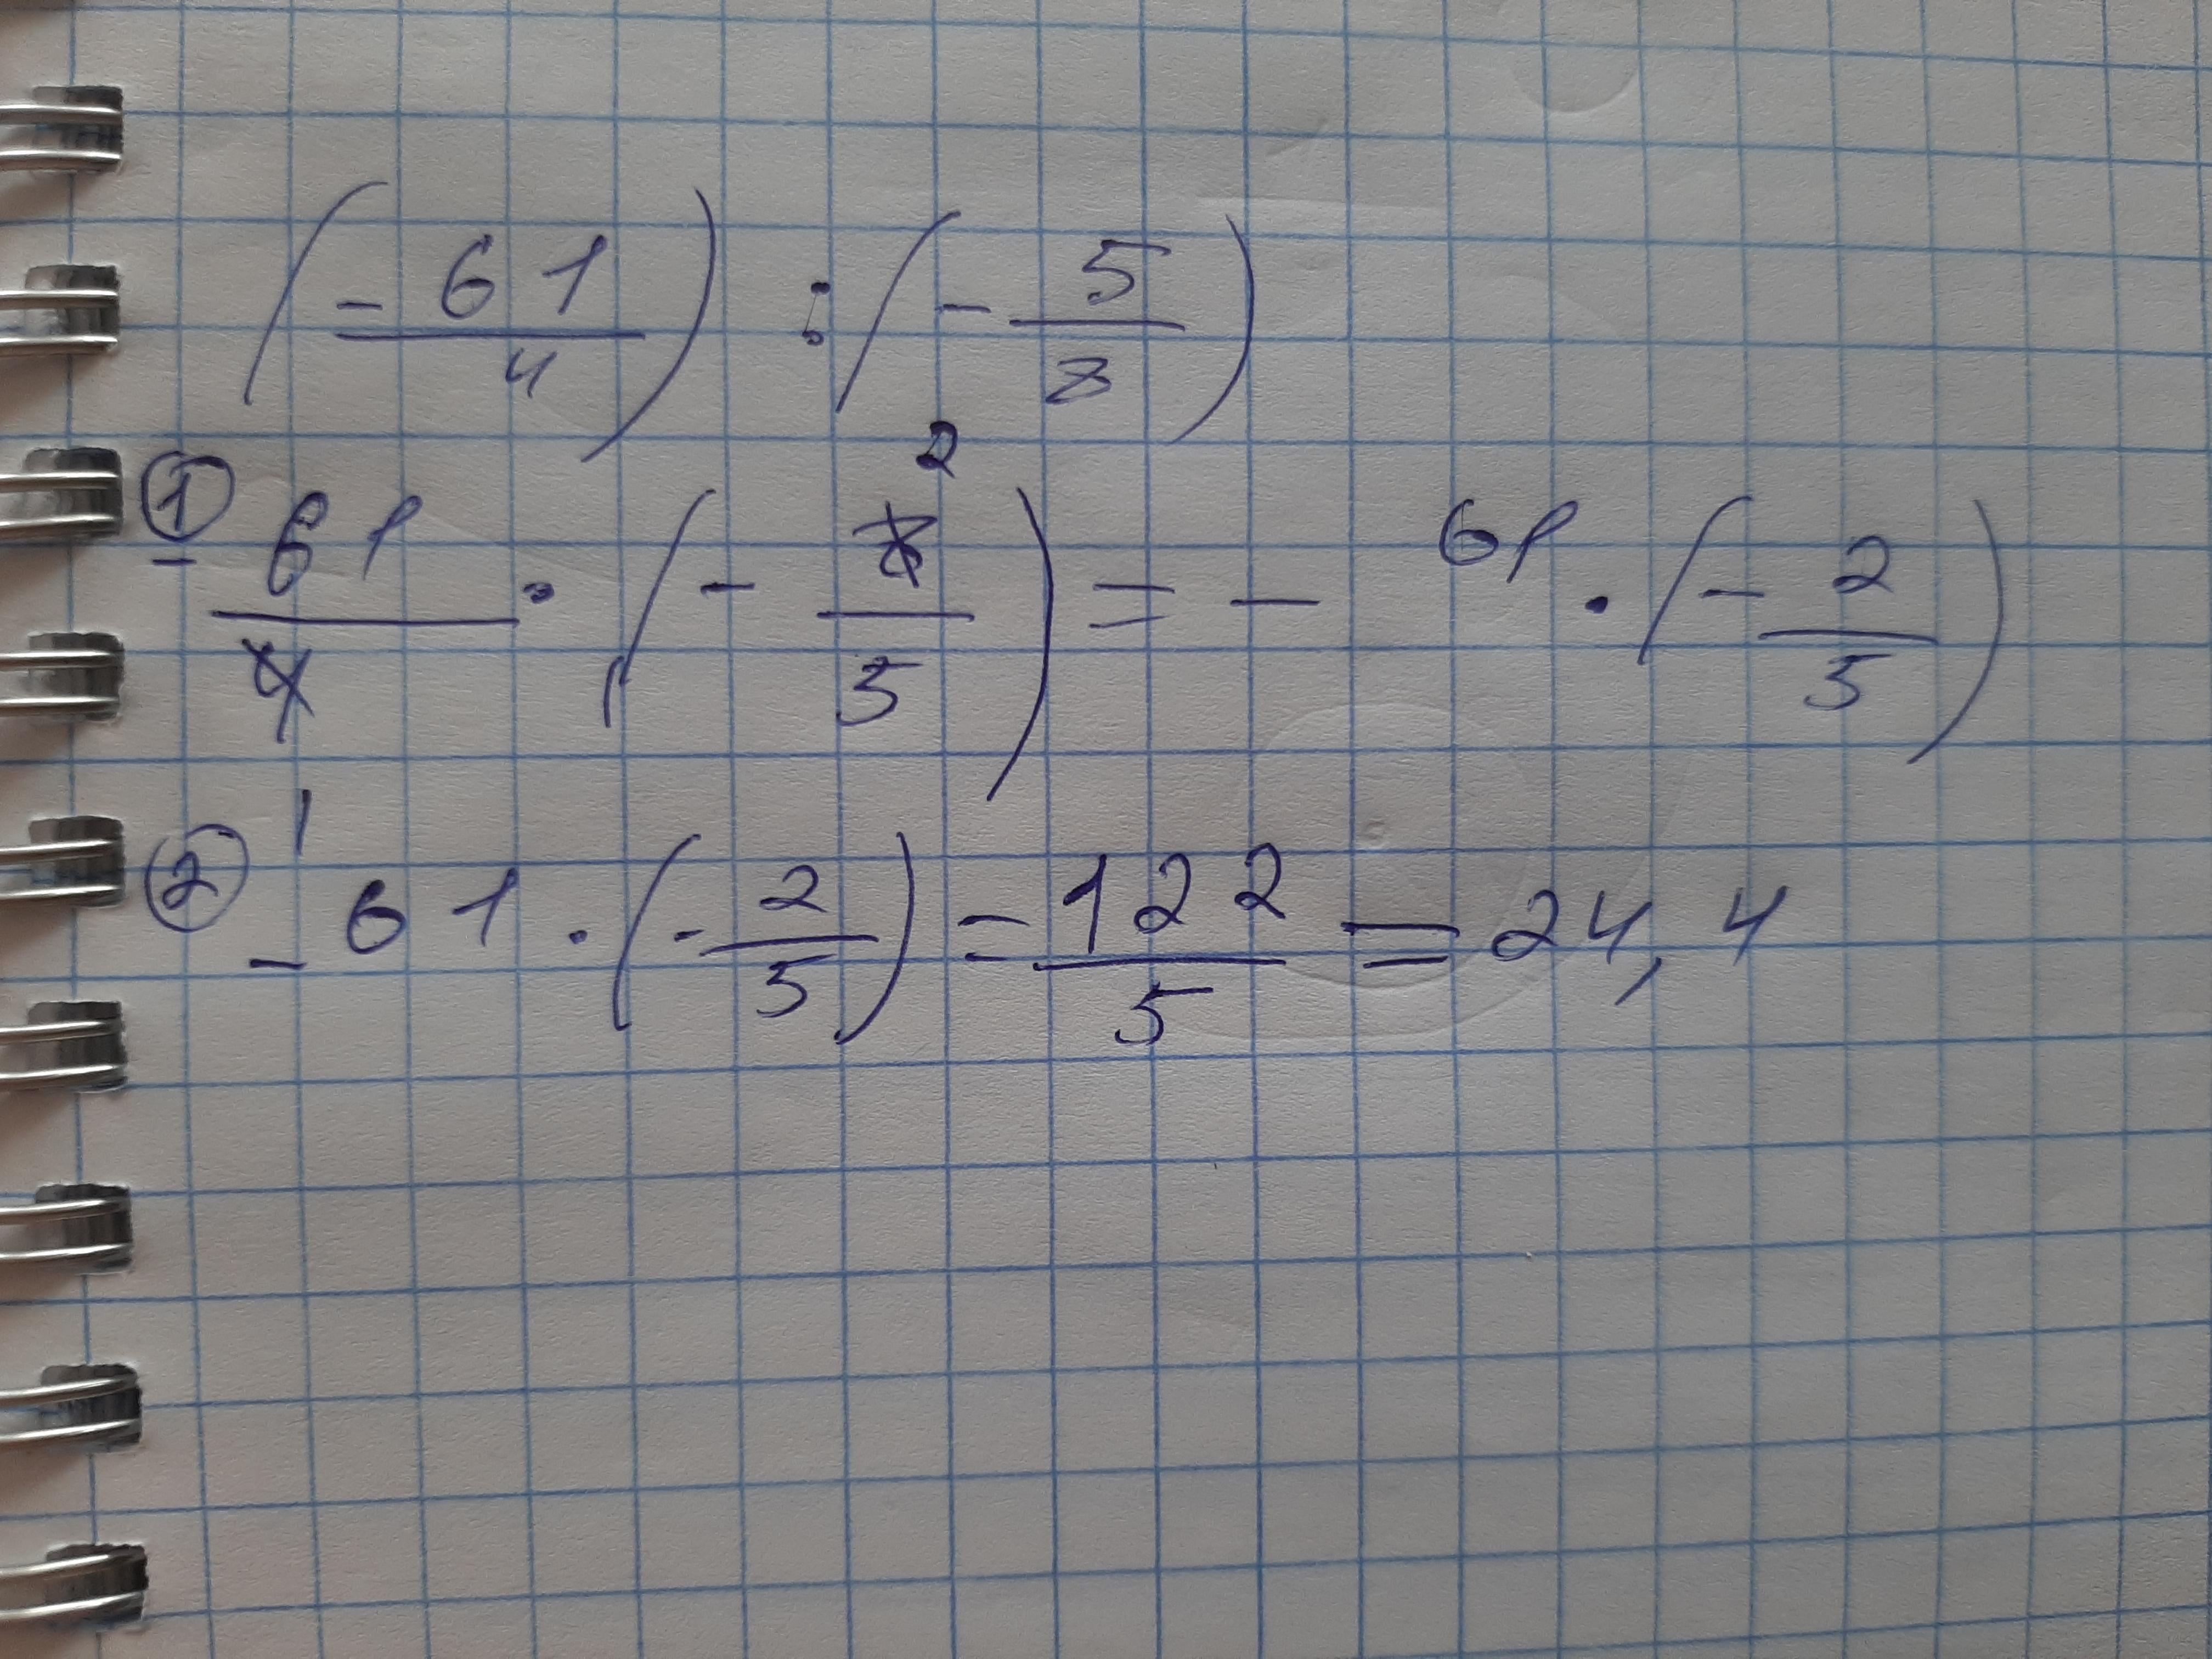 (-61/4) : (-5/8)
① -61/4 · (-8/5) = -61 · (-2/5)
2
1
② -61 · (-2/5) = 122/5 = 24,4